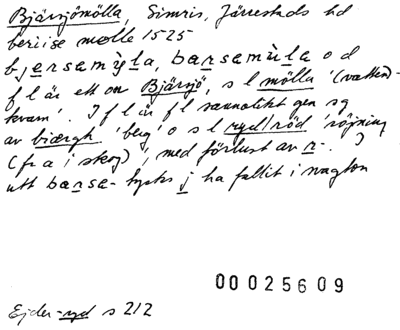 Bjärsjömölla, Simris, Järrestads hd
beriise mølle 1525
bjersamỳla, barsamùla o d
f l är ett on Bjärsjö, s l mölla '(vatten)-
kvarn'. I f l är f l sannolikt gen sg
av biærgh 'berg' o s l ryd/röd 'röjning
(fr a i skog)', med förlust av r-. I
utt barsa- tycks j ha fallit i någon
00025609
Ejder-ryd s 212